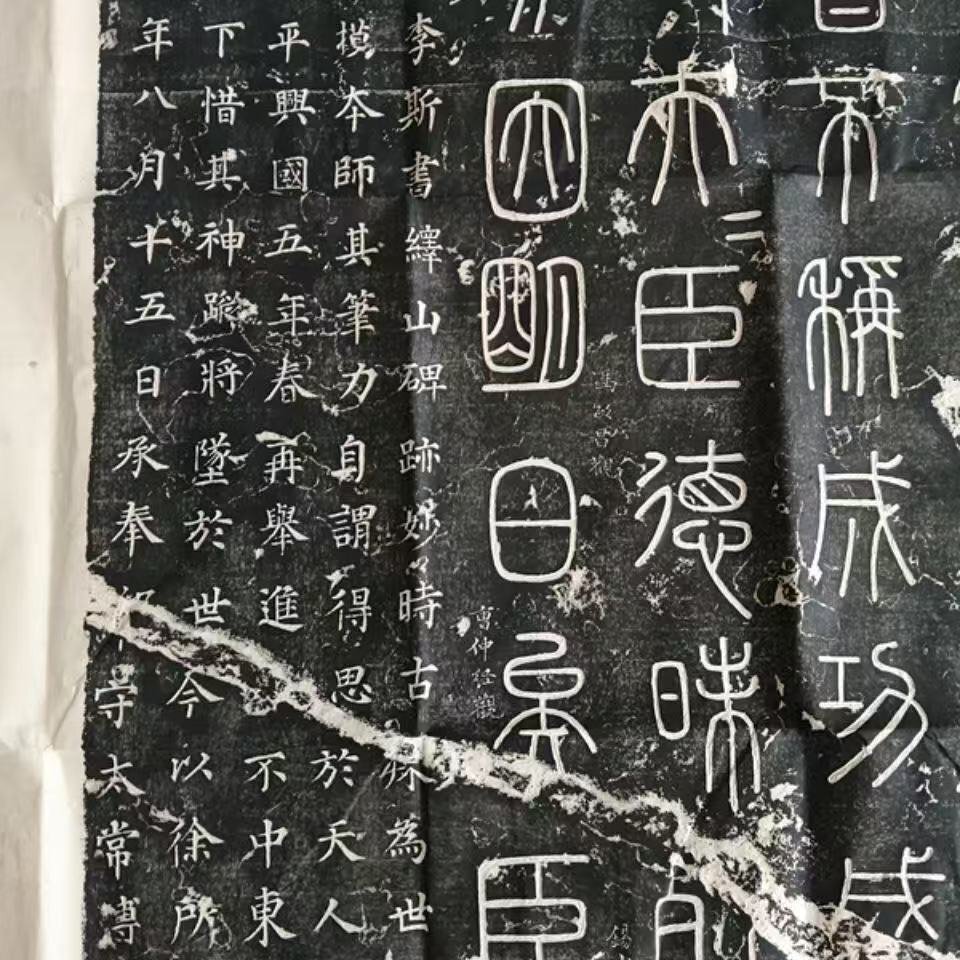 不稱成功
夫二臣德昧
因明白矣臣
李斯書繹山碑跡妙時古殊為世
摸本師其筆力自謂得思於天人
平興國五年春再舉進不中東
下惜其神蹤將墜於世今以徐所
年八月十五日承奉守太常博